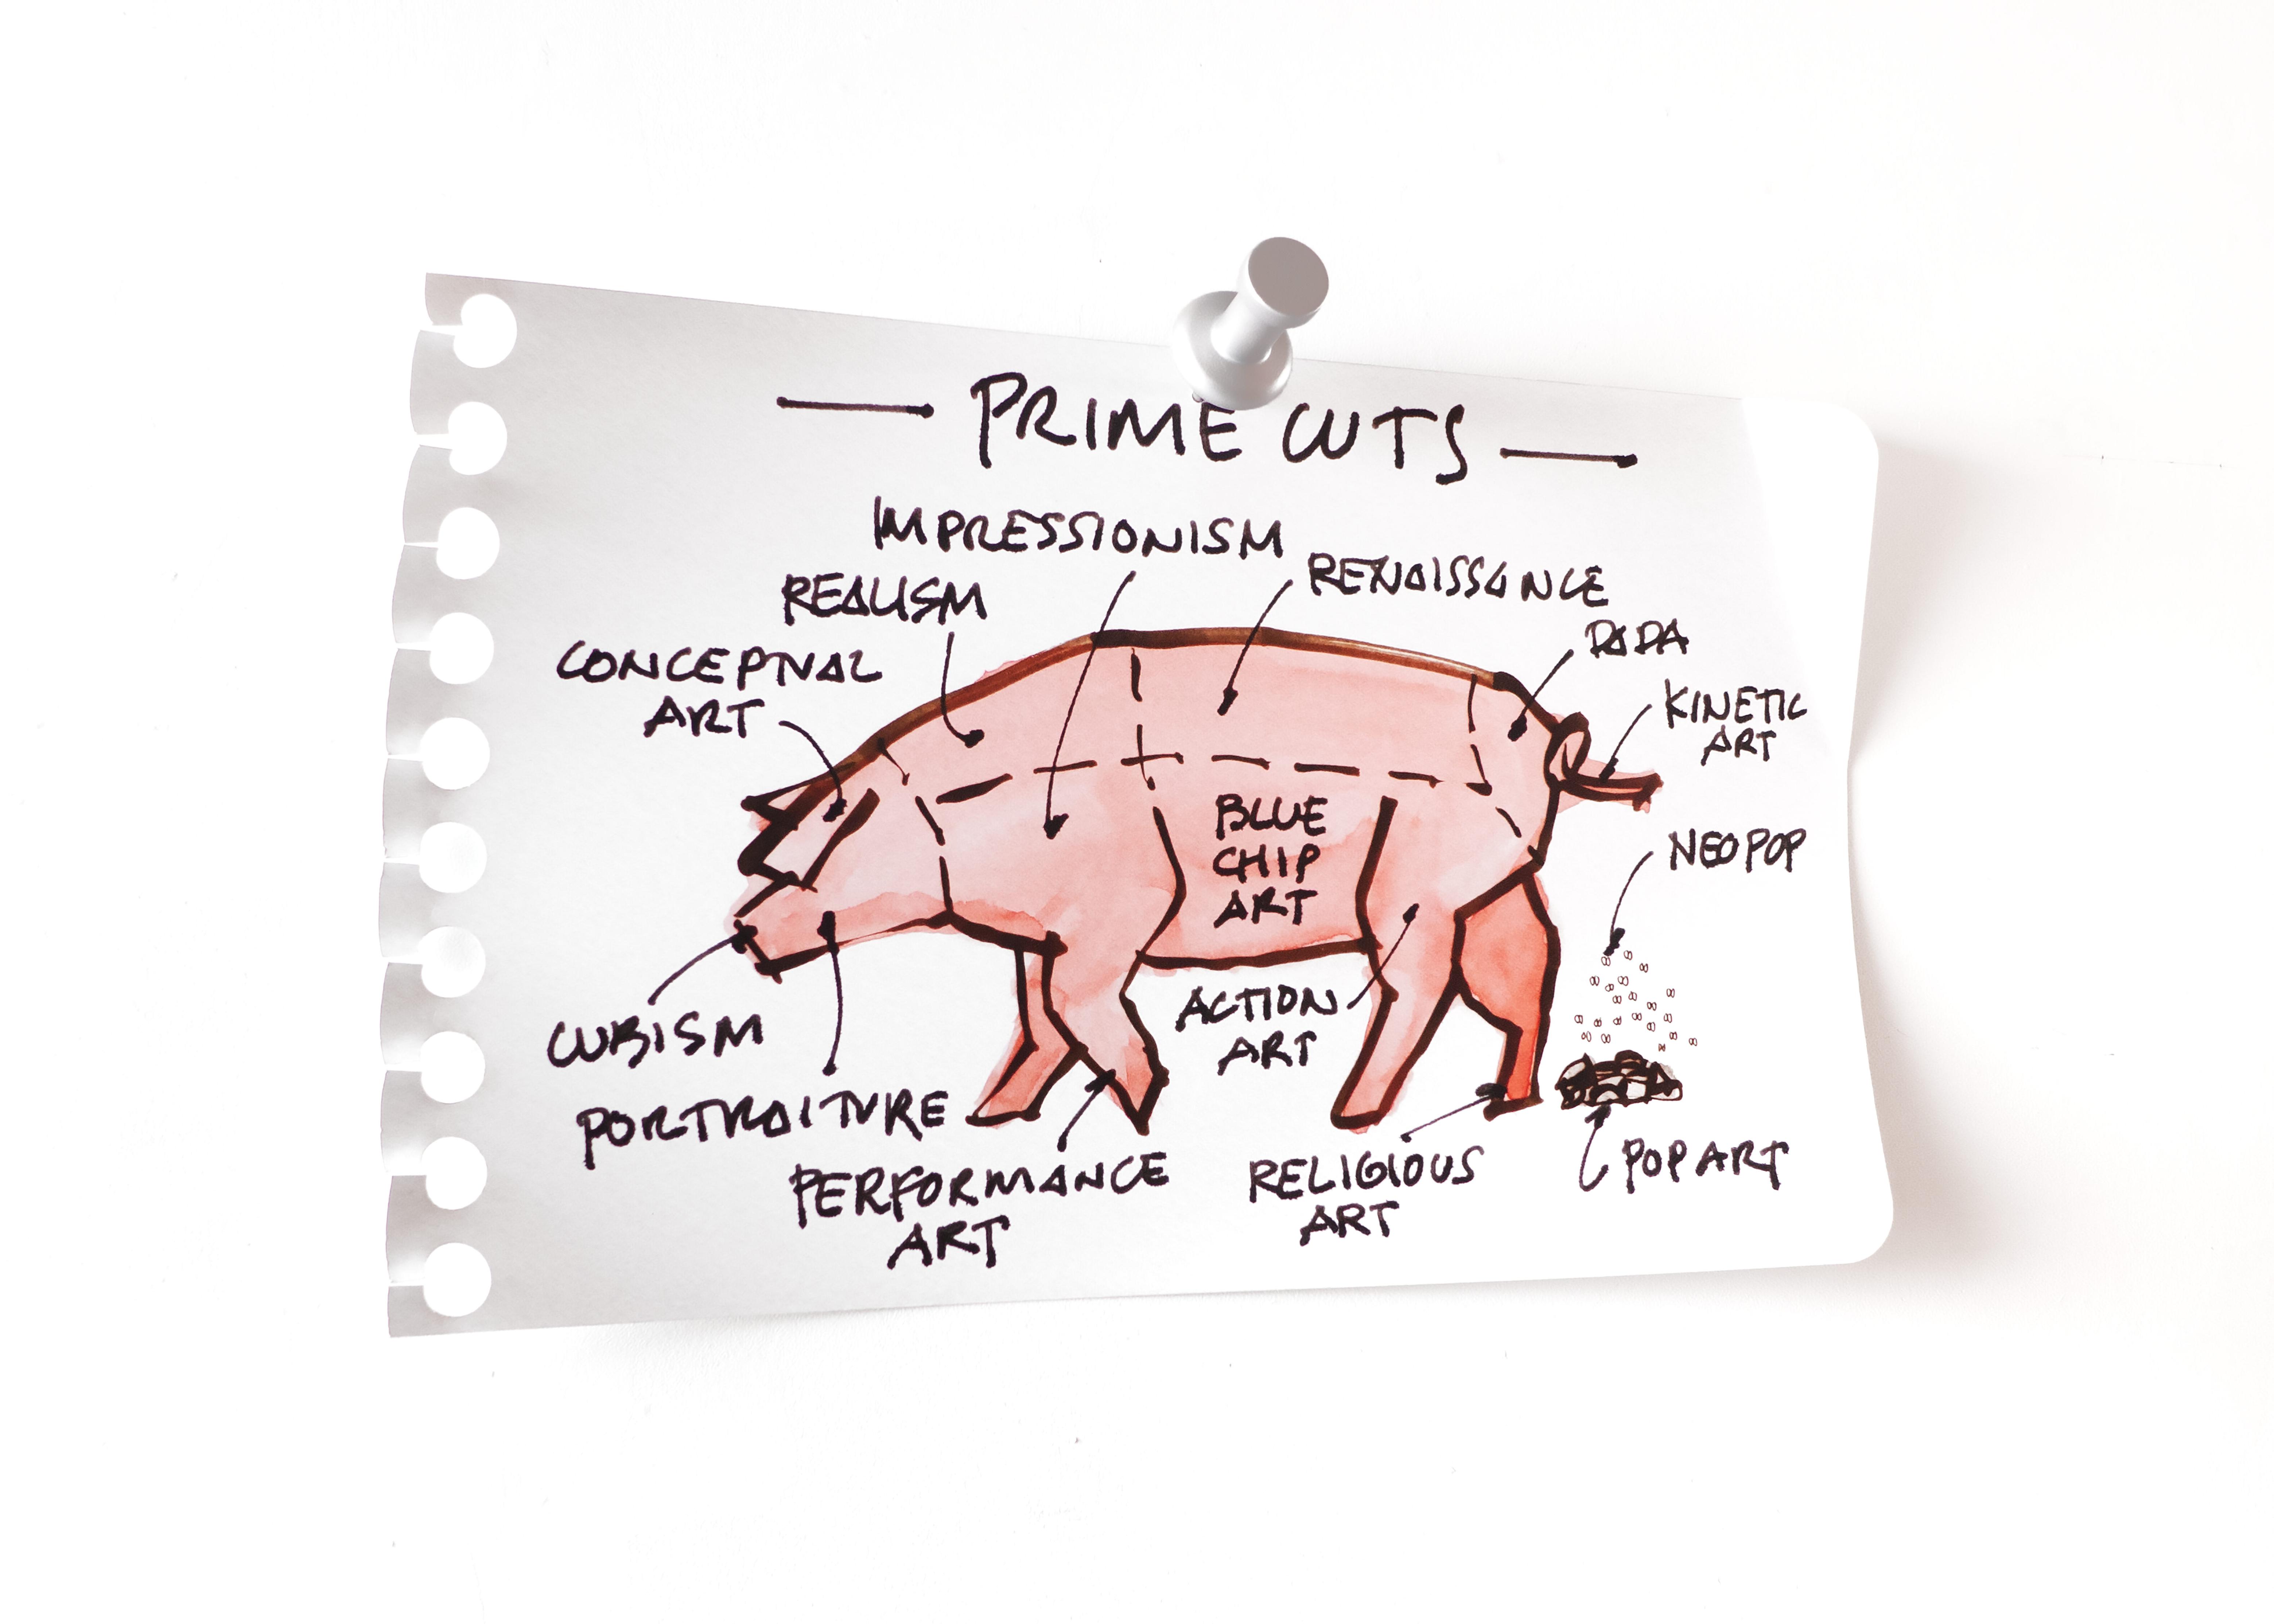 PRIME CUTS
IMPRESSIONISM
REALISM
RENAISSANCE
CONCEPTUAL
ART
DADA
KINETIC
ART
BLUE
CHIP
ART
NEOPOP
CUBISM
ACTION
ART
PORTRAITURE
PERFORMANCE
ART
RELIGIOUS
ART
POP ART